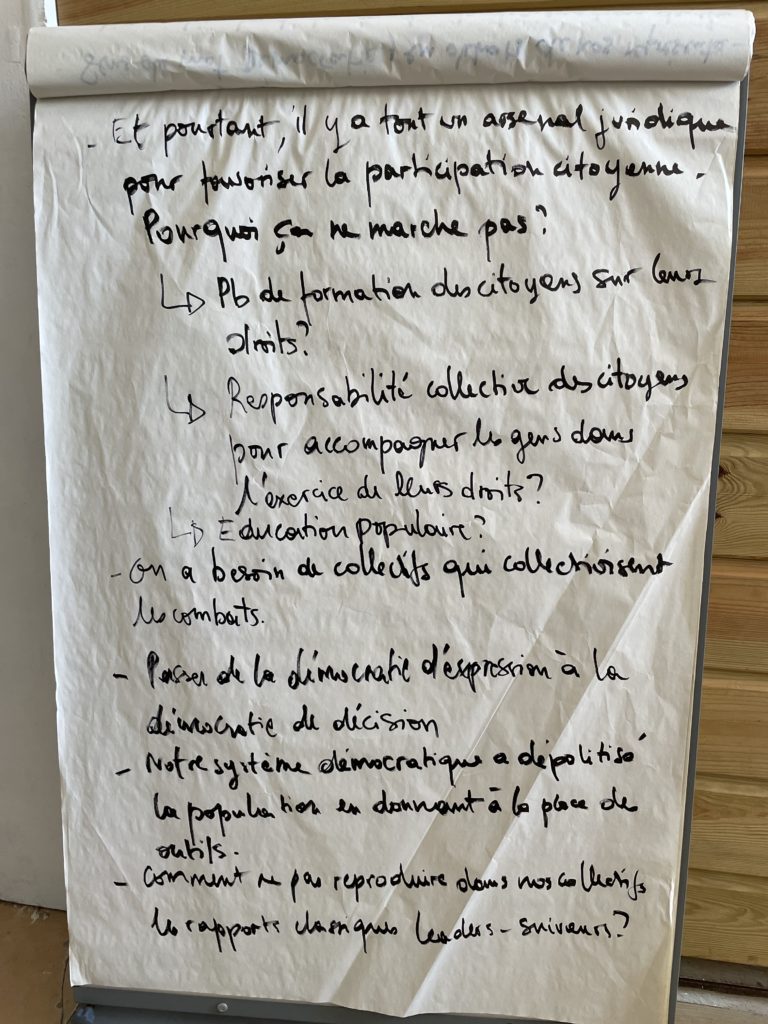 - Et pourtant, il y a tout un arsenal juridique
pour favoriser la participation citoyenne.
Pourquoi ça ne marche pas?
↳ Pb de formation des citoyens sur leurs
droits?
↳ Responsabilité collective des citoyens
pour accompagner les gens dans
l'exercice de leurs droits?
↳ Education populaire?
- On a besoin de collectifs qui collectivisent
les combats.
- Passer de la démocratie d'expression à la
démocratie de décision
- Notre système démocratique a dépolitisé
la population en donnant à la place de
outils.
- Comment ne pas reproduire dans nos collectifs
les rapports classiques leaders - suiveurs?